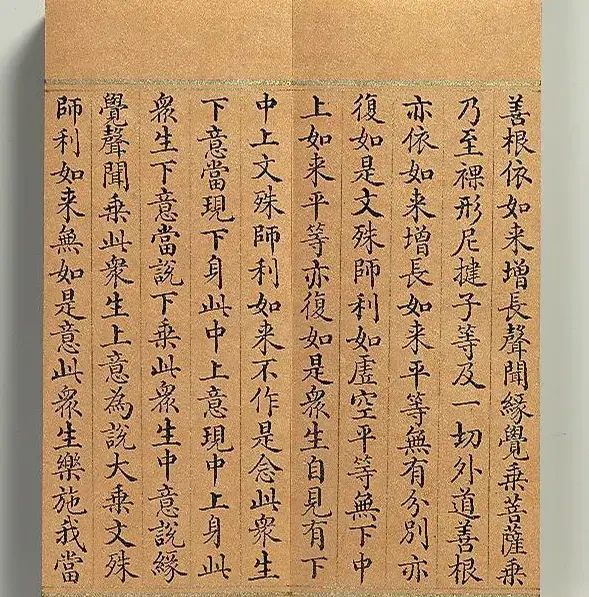 善根依如来增長聲聞緣覺乗菩薩乗
乃至裸形尼揵子等及一切外道善根
亦依如来增長如来平等無有分別亦
復如是文殊師利如虛空平等無下中
上如来平等亦復如是衆生自見有下
中上文殊師利如来不作是念此衆生
下意當現下身此中上意現中上身此
衆生下意當説下乗此衆生中意説緣
覺聲聞乗此衆生上意為説大乗文殊
師利如来無如是意此衆生樂施我當